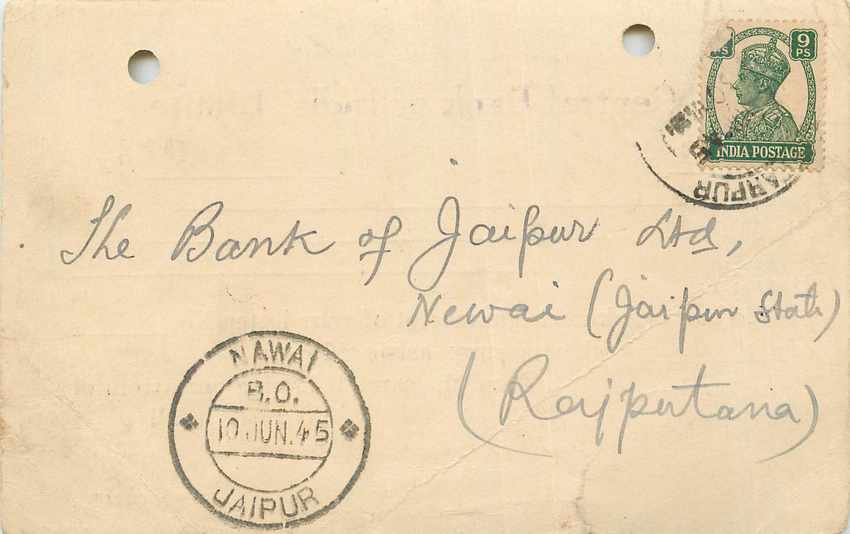 9
PS
INDIA POSTAGE
The Bank of Jaipur Ltd,
Newai (Jaipur State)
(Rajputana)
NAWAI
B.O.
10 JUN.45
JAIPUR